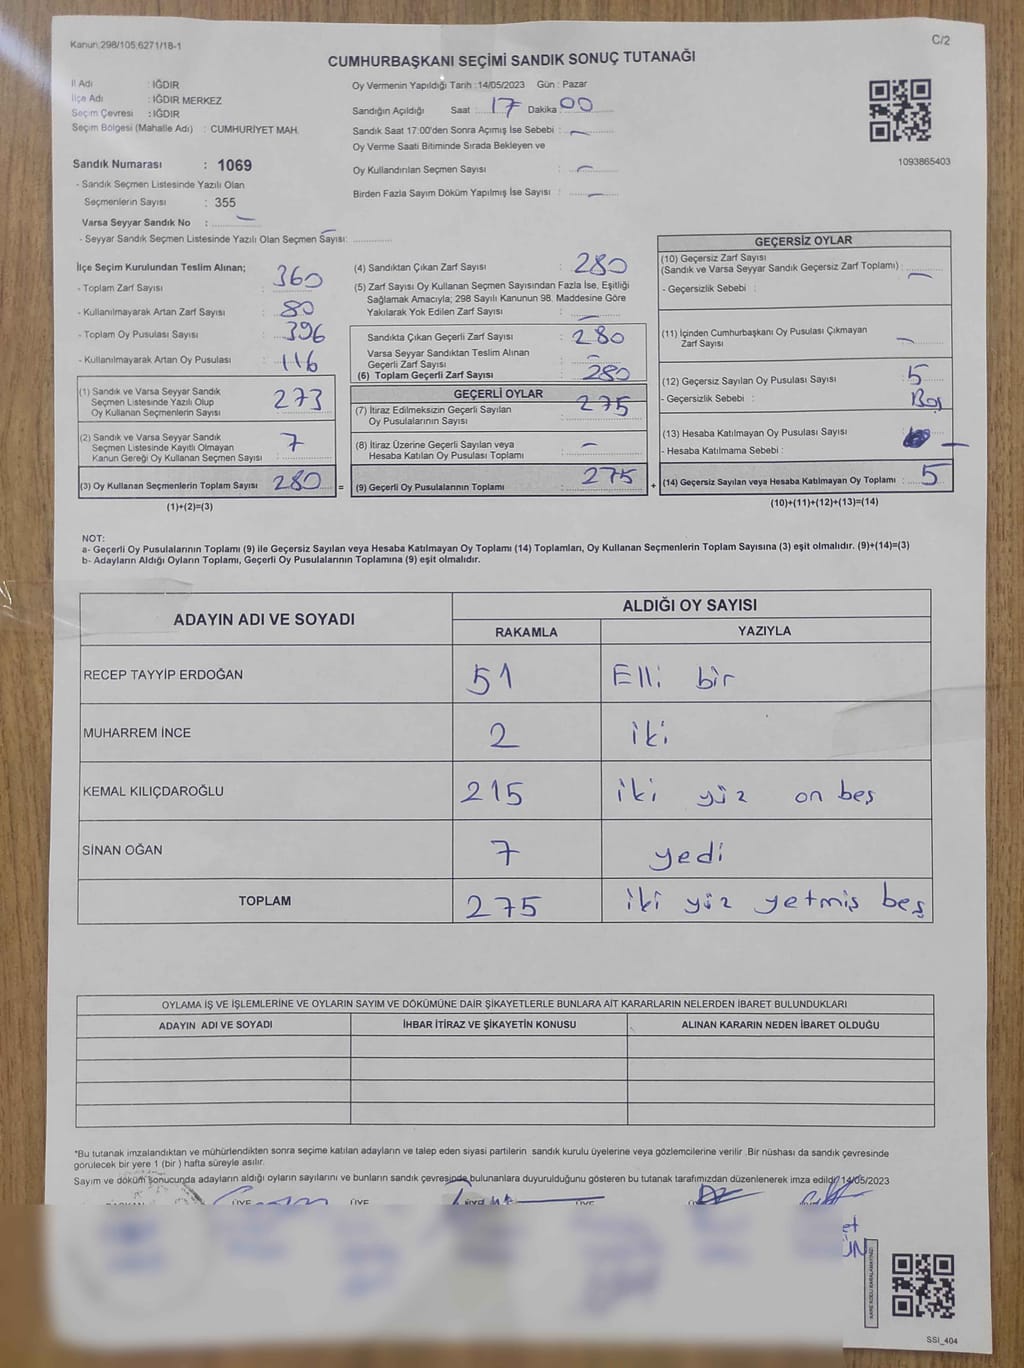 Kanun:298/105,6271/18-1
C/2
CUMHURBAŞKANI SEÇİMİ SANDIK SONUÇ TUTANAĞI
İl Adı : IĞDIR
İlçe Adı : IĞDIR MERKEZ
Seçim Çevresi : IĞDIR
Seçim Bölgesi (Mahalle Adı) : CUMHURİYET MAH.
Sandık Numarası : 1069
- Sandık Seçmen Listesinde Yazılı Olan
Seçmenlerin Sayısı : 355
Varsa Seyyar Sandık No : -
- Seyyar Sandık Seçmen Listesinde Yazılı Olan Seçmen Sayısı: -
Oy Vermenin Yapıldığı Tarih :14/05/2023 Gün : Pazar
Sandığın Açıldığı Saat : 17 Dakika 00
Sandık Saat 17:00'den Sonra Açımış İse Sebebi : -
Oy Verme Saati Bitiminde Sırada Bekleyen ve
Oy Kullandırılan Seçmen Sayısı : -
Birden Fazla Sayım Döküm Yapılmış İse Sayısı : -
1093865403
İlçe Seçim Kurulundan Teslim Alınan;
- Toplam Zarf Sayısı : 360
- Kullanılmayarak Artan Zarf Sayısı : 80
- Toplam Oy Pusulası Sayısı : 396
- Kullanılmayarak Artan Oy Pusulası : 116
(1) Sandık ve Varsa Seyyar Sandık
Seçmen Listesinde Yazılı Olup
Oy Kullanan Seçmenlerin Sayısı : 273
(2) Sandık ve Varsa Seyyar Sandık
Seçmen Listesinde Kayıtlı Olmayan
Kanun Gereği Oy Kullanan Seçmen Sayısı : 7
(3) Oy Kullanan Seçmenlerin Toplam Sayısı : 280 =
(1)+(2)=(3)
(4) Sandıktan Çıkan Zarf Sayısı : 280
(5) Zarf Sayısı Oy Kullanan Seçmen Sayısından Fazla İse, Eşitliği
Sağlamak Amacıyla; 298 Sayılı Kanunun 98. Maddesine Göre
Yakılarak Yok Edilen Zarf Sayısı : -
Sandıkta Çıkan Geçerli Zarf Sayısı : 280
Varsa Seyyar Sandıktan Teslim Alınan
Geçerli Zarf Sayısı : -
(6) Toplam Geçerli Zarf Sayısı : 280
GEÇERLİ OYLAR
(7) İtiraz Edilmeksizin Geçerli Sayılan
Oy Pusulalarının Sayısı : 275
(8) İtiraz Üzerine Geçerli Sayılan veya
Hesaba Katılan Oy Pusulası Toplamı : -
(9) Geçerli Oy Pusulalarının Toplamı : 275 +
GEÇERSİZ OYLAR
(10) Geçersiz Zarf Sayısı
(Sandık ve Varsa Seyyar Sandık Geçersiz Zarf Toplamı) : -
- Geçersizlik Sebebi :
(11) İçinden Cumhurbaşkanı Oy Pusulası Çıkmayan
Zarf Sayısı : -
(12) Geçersiz Sayılan Oy Pusulası Sayısı : 5
- Geçersizlik Sebebi : Boş
(13) Hesaba Katılmayan Oy Pusulası Sayısı : -
- Hesaba Katılmama Sebebi :
(14) Geçersiz Sayılan veya Hesaba Katılmayan Oy Toplamı : 5
(10)+(11)+(12)+(13)=(14)
NOT:
a- Geçerli Oy Pusulalarının Toplamı (9) ile Geçersiz Sayılan veya Hesaba Katılmayan Oy Toplamı (14) Toplamları, Oy Kullanan Seçmenlerin Toplam Sayısına (3) eşit olmalıdır. (9)+(14)=(3)
b- Adayların Aldığı Oyların Toplamı, Geçerli Oy Pusulalarının Toplamına (9) eşit olmalıdır.
ADAYIN ADI VE SOYADI ALDIĞI OY SAYISI
RAKAMLA YAZIYLA
RECEP TAYYİP ERDOĞAN 51 Elli bir
MUHARREM İNCE 2 iki
KEMAL KILIÇDAROĞLU 215 iki yüz on beş
SİNAN OĞAN 7 yedi
TOPLAM 275 iki yüz yetmiş beş
OYLAMA İŞ VE İŞLEMLERİNE VE OYLARIN SAYIM VE DÖKÜMÜNE DAİR ŞİKAYETLERLE BUNLARA AİT KARARLARIN NELERDEN İBARET BULUNDUKLARI
ADAYIN ADI VE SOYADI İHBAR İTİRAZ VE ŞİKAYETİN KONUSU ALINAN KARARIN NEDEN İBARET OLDUĞU
*Bu tutanak imzalandıktan ve mühürlendikten sonra seçime katılan adayların ve talep eden siyasi partilerin sandık kurulu üyelerine veya gözlemcilerine verilir .Bir nüshası da sandık çevresinde
görülecek bir yere 1 (bir ) hafta süreyle asılır.
Sayım ve döküm sonucunda adayların aldığı oyların sayılarını ve bunların sandık çevresinde bulunanlara duyurulduğunu gösteren bu tutanak tarafımızdan düzenlenerek imza edildi. 14/05/2023
ÜYE ÜYE ÜYE
SSI_404